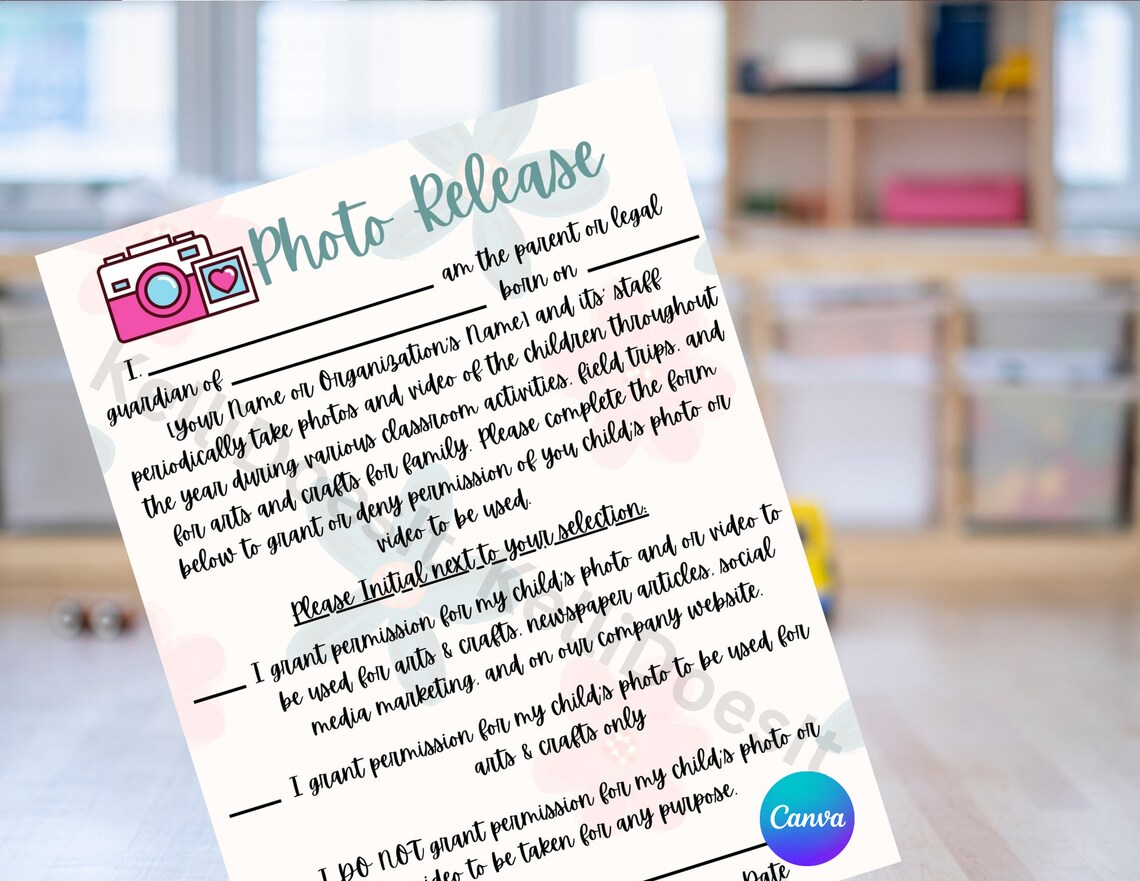 Photo Release
I, ____ am the parent or legal
guardian of ____ born on ____
[Your Name or Organization's Name] and its' staff
periodically take photos and video of the children throughout
the year during various classroom activities, field trips, and
for arts and crafts for family. Please complete the form
below to grant or deny permission of you child's photo or
video to be used.
Please Initial next to your selection:
____ I grant permission for my child's photo and or video to
be used for arts & crafts, newspaper articles, social
media marketing, and on our company website.
____ I grant permission for my child's photo to be used for
arts & crafts only
I DO NOT grant permission for my child's photo or
video to be taken for any purpose.
Date
Canva
KelliDoesIt
KelliDoesIt